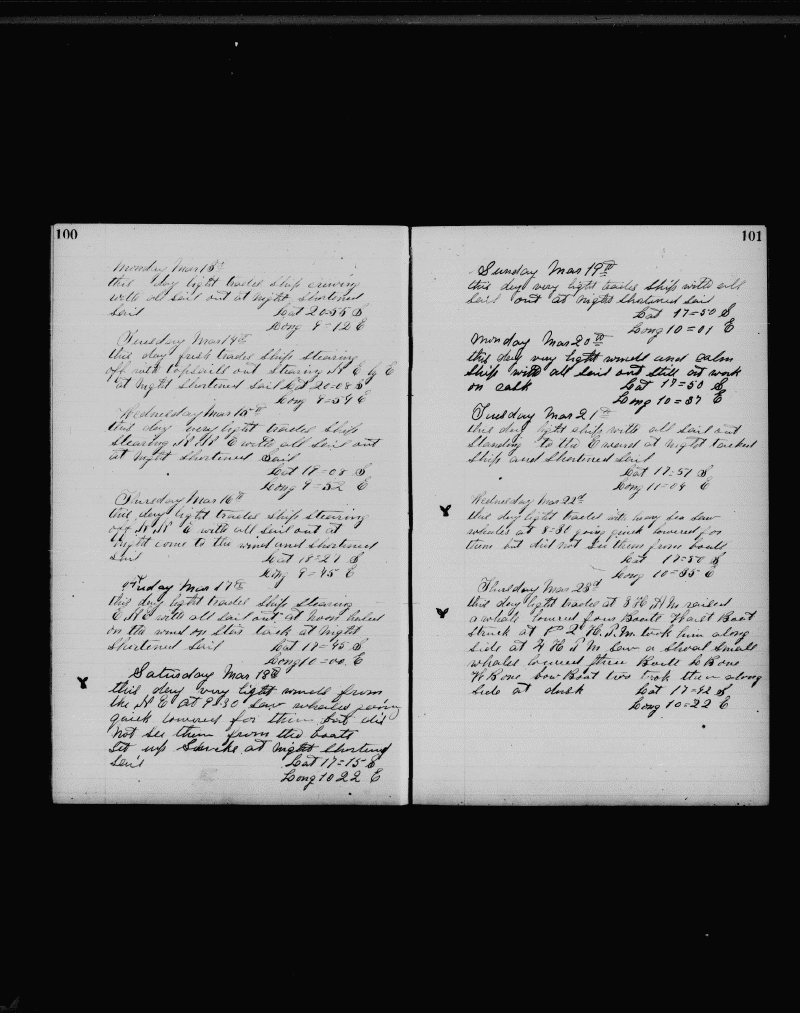 100
Monday Mar 13th
this day light trades ship cruising
with all sail out at night shortened
sail Lat 20=55 S
Long 9=12 E
Tuesday Mar 14th
this day fresh trades ship stearing
off with topsails out stearing N E by E
at night shortened sail Lat 20=08 S
Long 9=59 E
Wednesday Mar 15th
this day very light trades ship
stearing N N E with all sail out
at night shortened sail
Lat 19=08 S
Long 9=52 E
Thursday Mar 16th
this day light trades ship stearing
off N N E with all sail out at
night come to the wind and shortened
sail Lat 18=27 S
Long 9=45 E
Friday Mar 17th
this day light trades ship stearing
E N E with all sail out at noon hauled
on the wind on Star tack at night
shortened sail Lat 17=45 S
Long 10=00 E
Saturday Mar 18th
this day very light winds from
the N E at 9=30 saw whales going
quick lowered for them but did
not see them from the boats
set up at night shortened
sail Lat 17=15 S
Long 10 22 E
101
Sunday Mar 19th
this day very light trades ship with all
sail out at night shortened sail
Lat 17=50 S
Long 10=01 E
Monday Mar 20th
this day very light winds and calm
ship with all sail out still at work
on cask Lat 17=50 S
Long 10=37 E
Tuesday Mar 21st
this day light ship with all sail out
standing to the E ward at night tacked
ship and shortened sail
Lat 17=57 S
Long 11=04 E
Wednesday Mar 22d
this day light trades with heavy sea saw
whales at 8=30 going quick lowered for
them but did not see them from boats
Lat 17=50 S
Long 10=35 E
Thursday Mar 23d
this day light trades at 8 H A M raised
a whale lowered four Boats Waist Boat
struck at 2 H P M took him along
side at 4 H P M saw a shoal small
whales lowered three Boats L Boat
W B one bow Boat two took them along
side at dusk Lat 17=42 S
Long 10=22 E